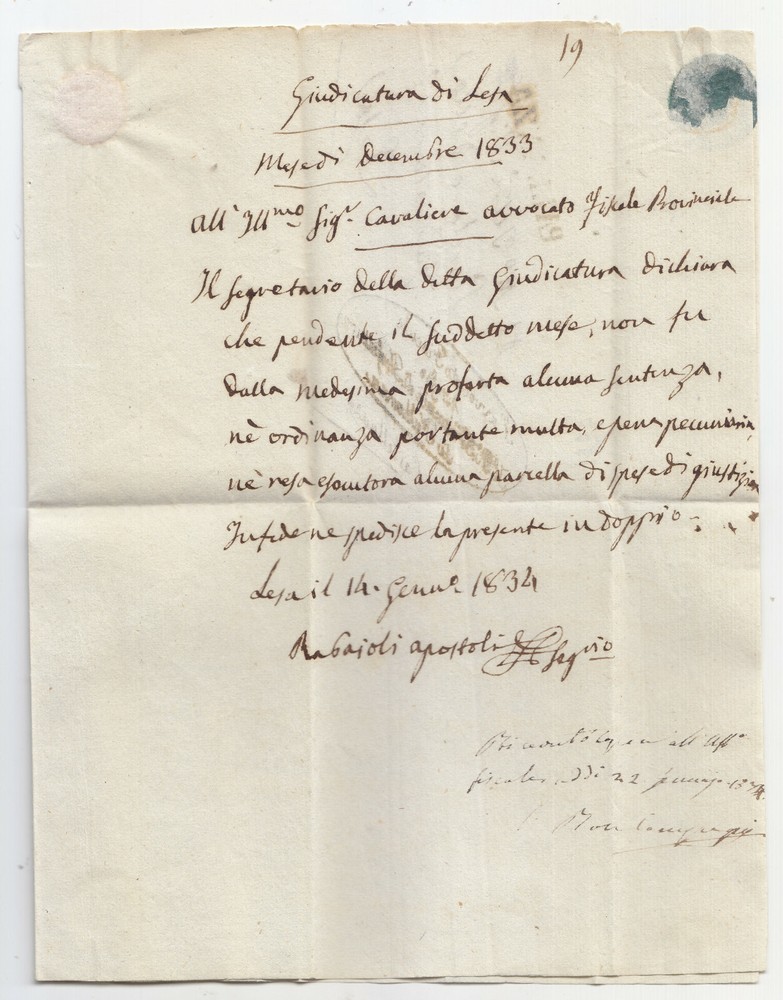 19
Giudicatura di Lesa
Mese di Decembre 1833
All' Illmo Sigr. Cavaliere avvocato Fiscale Provinciale
Il Segretario della detta Giudicatura dichiara
che pendente il suddetto mese, non fu
dalla medesima proferta alcuna sentenza,
nè ordinanza portante multa, e pena pecuniaria,
nè resa esecutoria alcuna parcella di spese di giustizia
In fede ne spedisce la presente in doppio.
Lesa il 14. Genno. 1834
Rabaioli apostoli Segrio
all' Uffo
fiscale addi 22 1834.